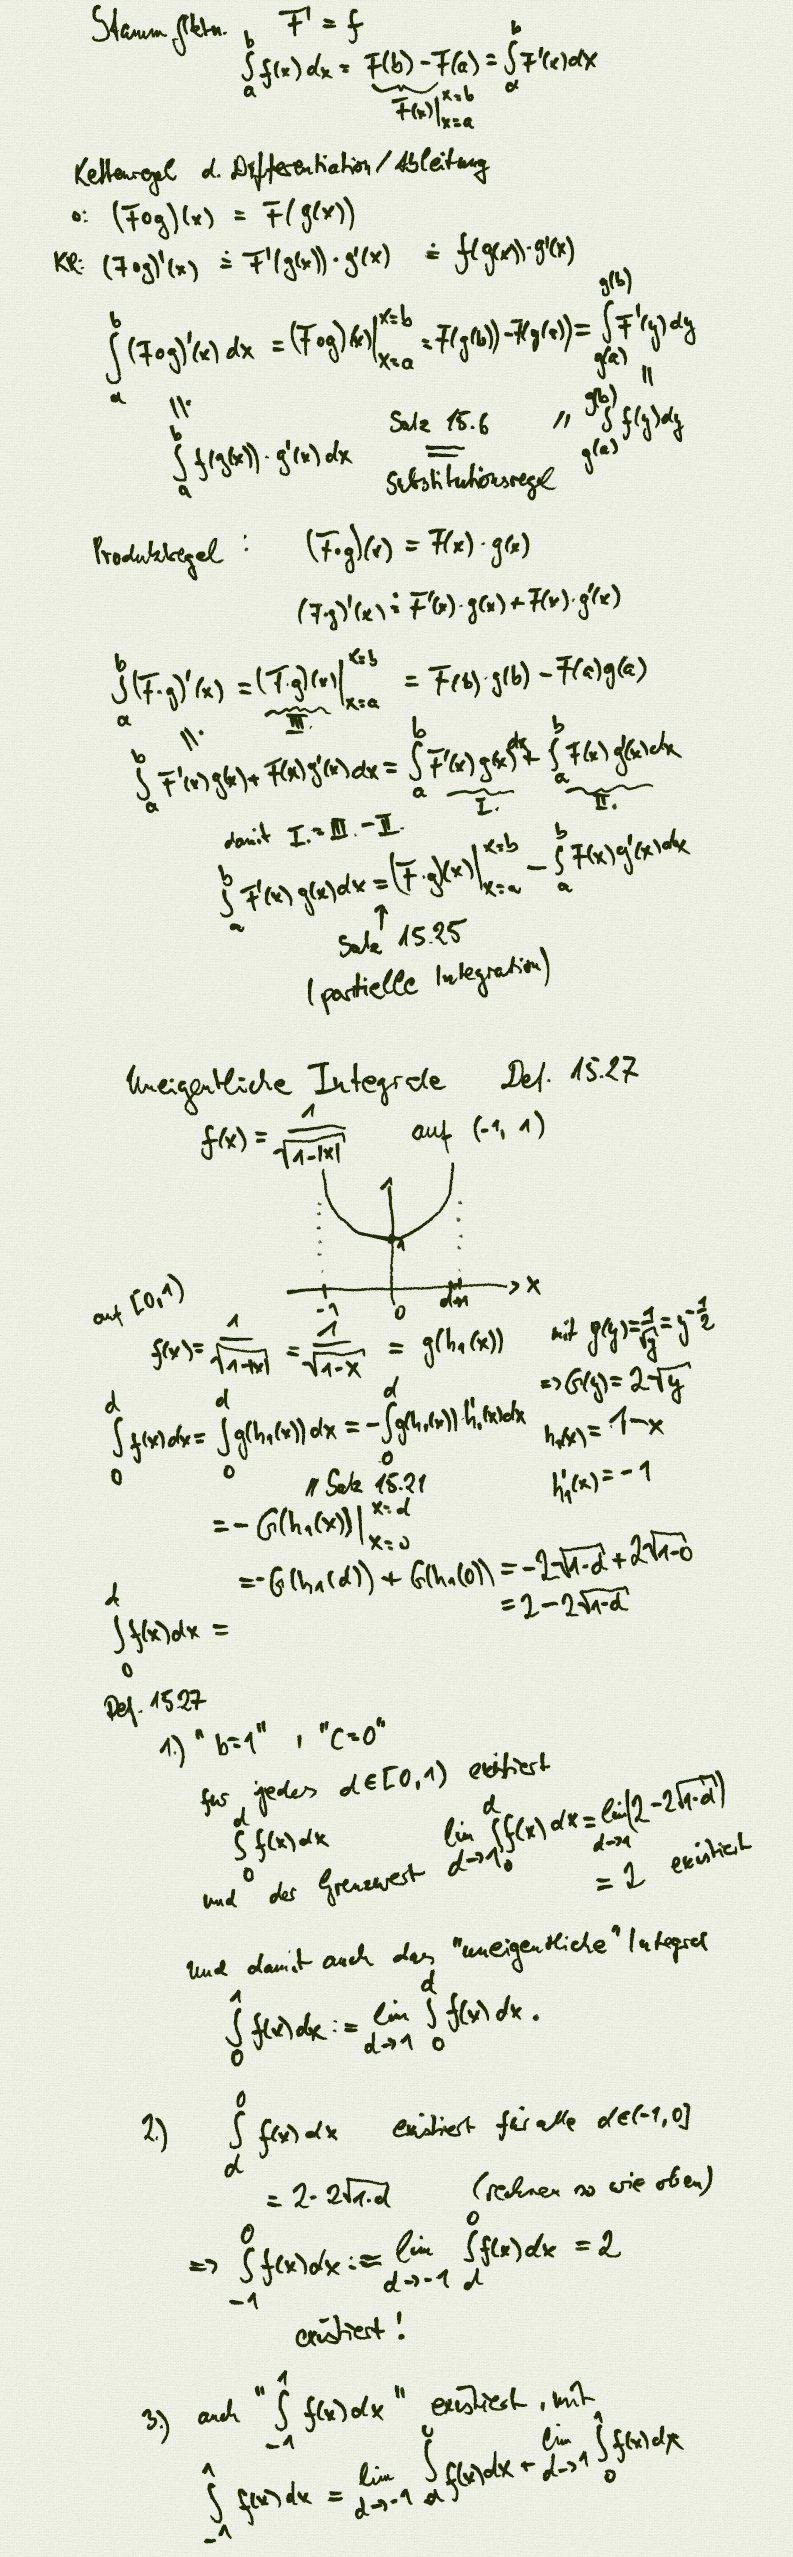 Stammfktn. F' = f
∫_a^b f(x) dx = F(b) - F(a) = ∫_a^b F'(x) dx
F(x)|_{x=a}^{x=b}
Kettenregel d. Differentiation/Ableitung
∘: (F∘g)(x) = F(g(x))
KR: (F∘g)'(x) ≐ F'(g(x))·g'(x) ≐ f(g(x))·g'(x)
∫_a^b (F∘g)'(x) dx = (F∘g)(x)|_{x=a}^{x=b} = F(g(b)) - F(g(a)) = ∫_{g(a)}^{g(b)} F'(y) dy
||· ||
∫_a^b f(g(x))·g'(x) dx Satz 15.6 = Substitutionsregel " ∫_{g(a)}^{g(b)} f(y) dy
Produktregel : (F·g)(x) = F(x)·g(x)
(F·g)'(x) ≐ F'(x)·g(x) + F(x)·g'(x)
∫_a^b (F·g)'(x) = (F·g)(x)|_{x=a}^{x=b} = F(b)·g(b) - F(a)g(a)
||· III.
∫_a^b F'(x)g(x) + F(x)g'(x) dx = ∫_a^b F'(x)g(x) dx + ∫_a^b F(x)g'(x) dx
I. II.
damit I. = III. - II.
∫_a^b F'(x)g(x) dx = (F·g)(x)|_{x=a}^{x=b} - ∫_a^b F(x)g'(x) dx
↑
Satz 15.25
(partielle Integration)
Uneigentliche Integrale Def. 15.27
f(x) = 1/√(1-|x|) auf (-1, 1)
1
x
-1 0 d→1
auf [0,1)
f(x) = 1/√(1-|x|) = 1/√(1-x) = g(h₁(x)) mit g(y) = 1/√y = y^{-1/2}
=> G(y) = 2√y
∫_0^d f(x) dx = ∫_0^d g(h₁(x)) dx = -∫_0^d g(h₁(x)) h₁'(x) dx h₁(x) = 1-x
" Satz 15.21 h₁'(x) = -1
= -G(h₁(x))|_{x=0}^{x=d}
= -G(h₁(d)) + G(h₁(0)) = -2√(1-d) + 2√(1-0)
= 2 - 2√(1-d)
∫_0^d f(x) dx =
Def. 15.27
1.) "b=1" , "c=0"
für jedes d∈[0,1) existiert
∫_0^d f(x) dx
und der Grenzwert lim_{d→1} ∫_0^d f(x) dx = lim_{d→1} (2 - 2√(1-d))
= 2 existiert
und damit auch das "uneigentliche" Integral
∫_0^1 f(x) dx := lim_{d→1} ∫_0^d f(x) dx.
2.) ∫_d^0 f(x) dx existiert für alle d∈(-1,0]
= 2-2√(1-d) (rechnen so wie oben)
=> ∫_{-1}^0 f(x) dx := lim_{d→-1} ∫_d^0 f(x) dx = 2
existiert!
3.) auch "∫_{-1}^1 f(x) dx" existiert, mit
∫_{-1}^1 f(x) dx = lim_{d→-1} ∫_d^0 f(x) dx + lim_{d→1} ∫_0^1 f(x) dx